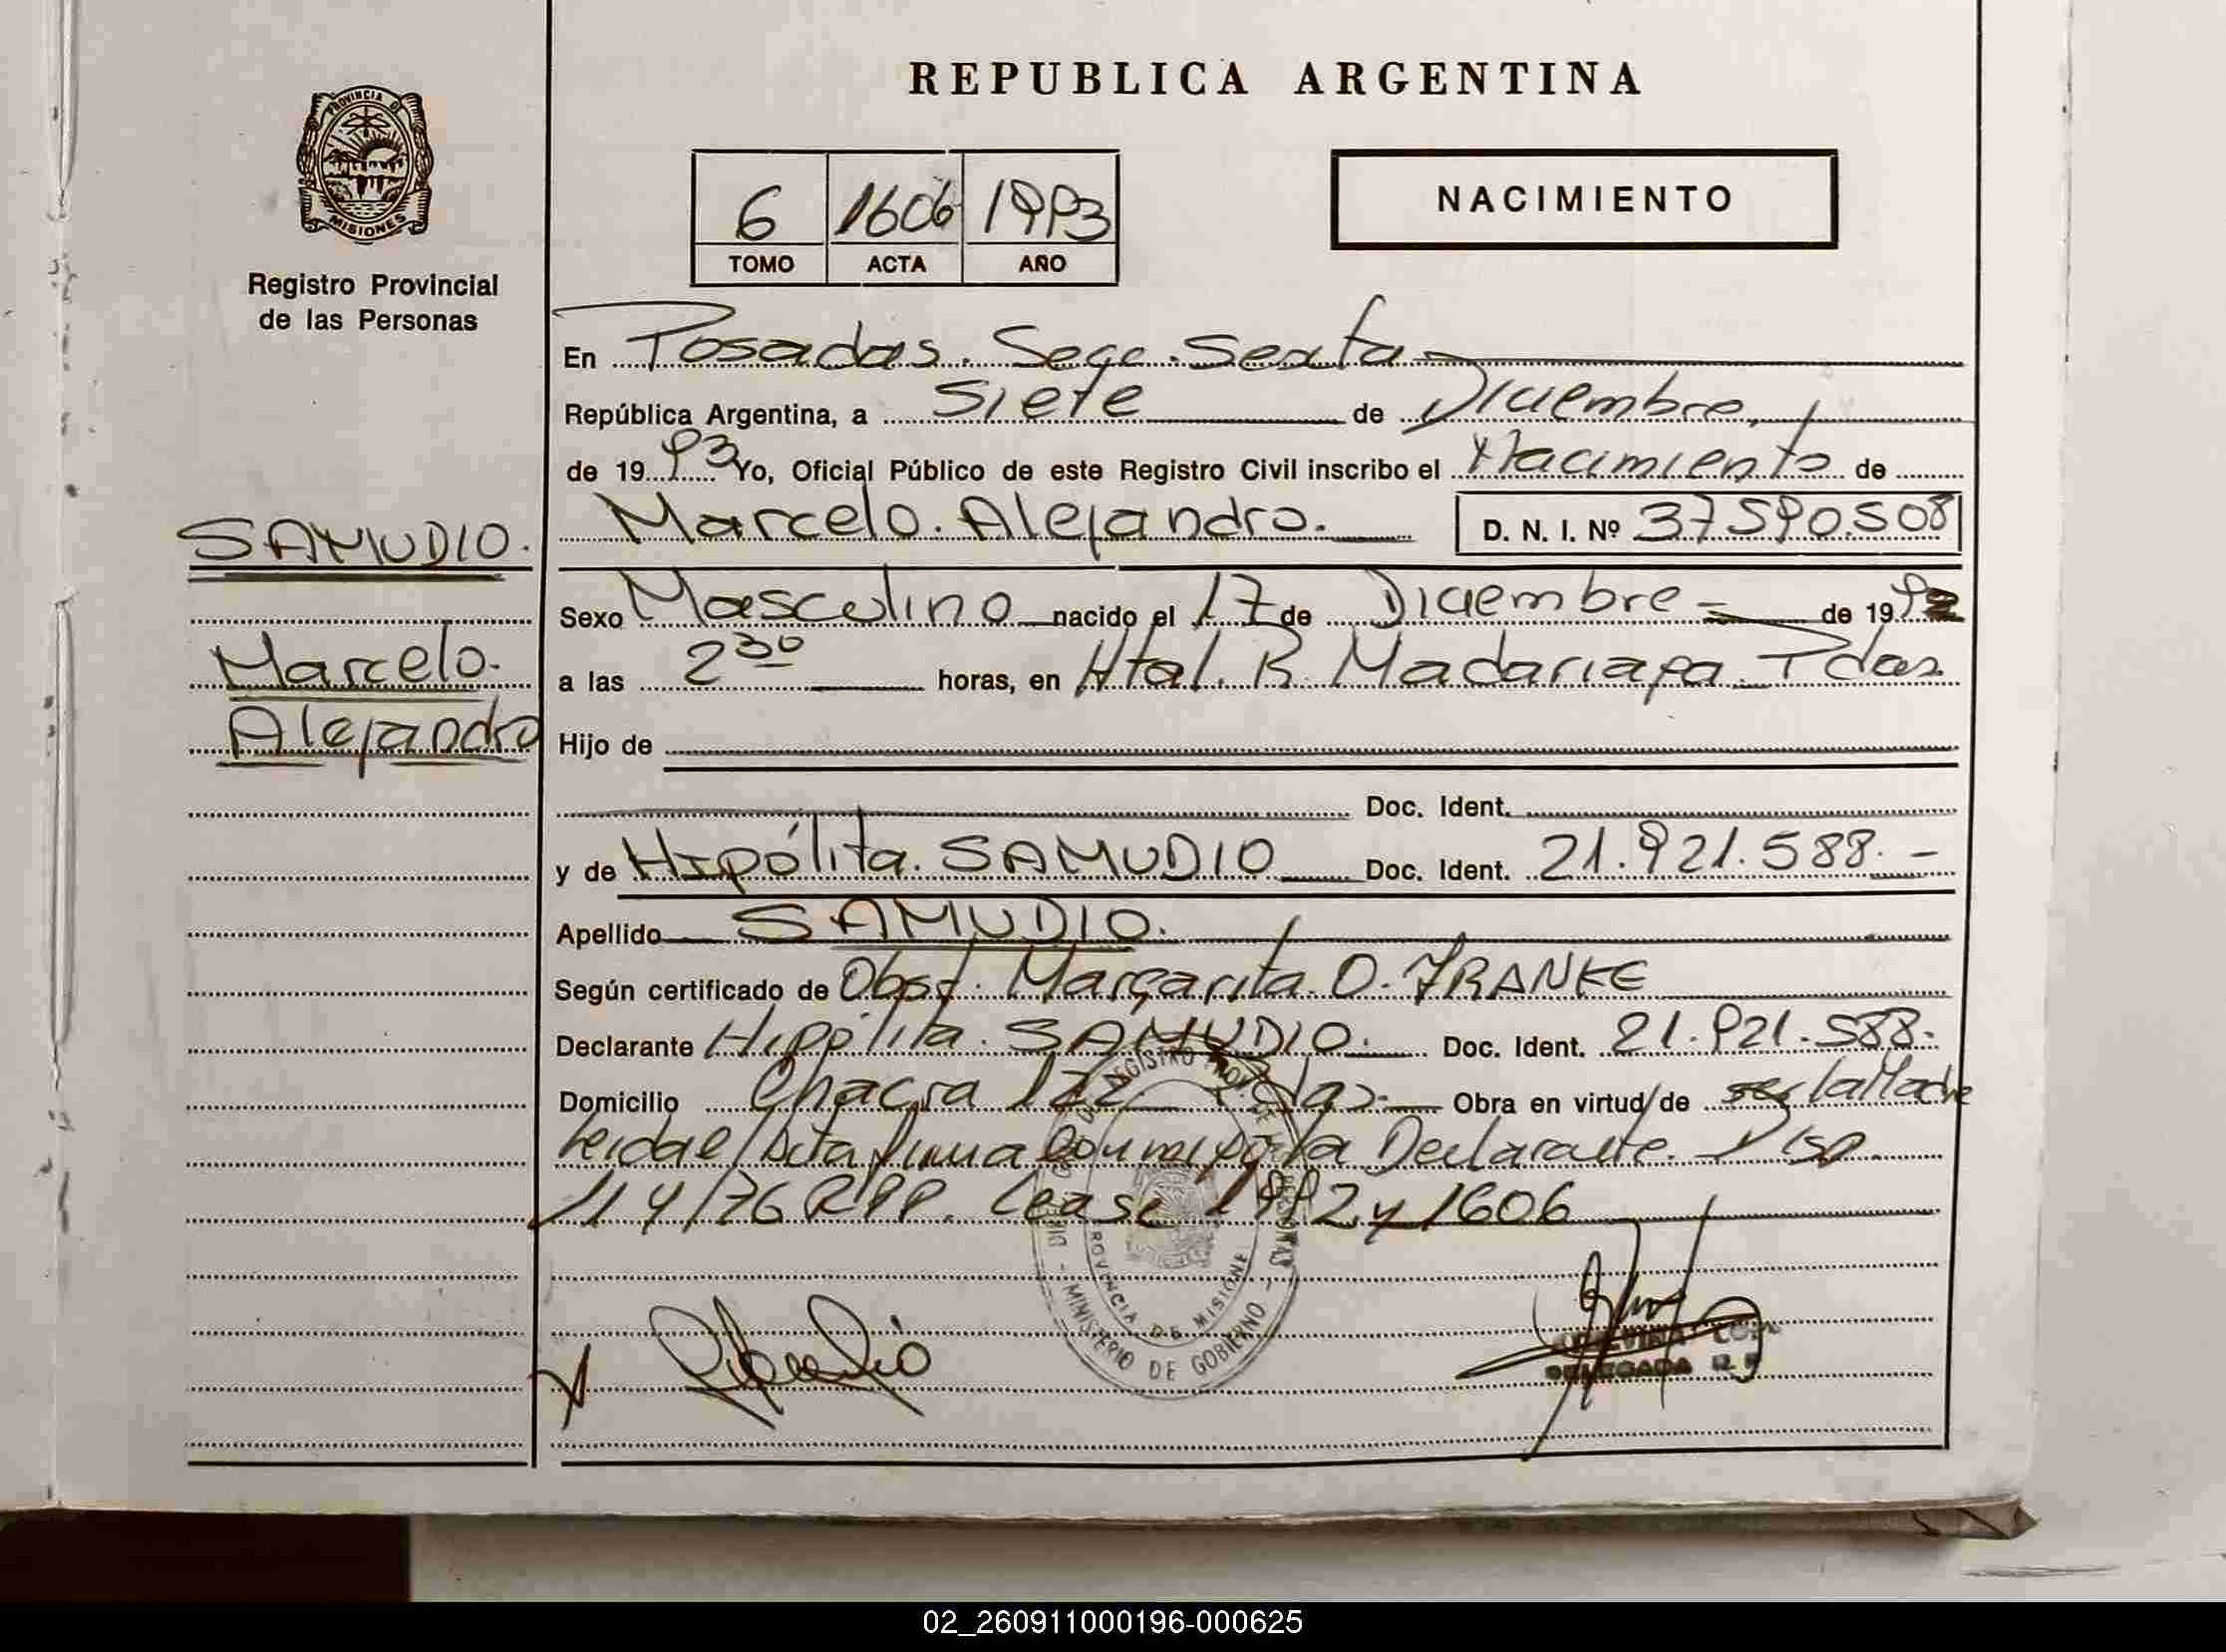 REPUBLICA ARGENTINA
PROVINCIA DE MISIONES
Registro Provincial
de las Personas
6 1606 1993
TOMO ACTA AÑO
NACIMIENTO
En Posadas. Secc. Sexta
República Argentina, a Siete de Diciembre
de 1993 Yo, Oficial Público de este Registro Civil inscribo el Nacimiento de
Marcelo. Alejandro. D. N. I. Nº 37.590.508
SAMUDIO.
Marcelo.
Alejandro
Sexo Masculino nacido el 17 de Diciembre de 1992
a las 2 30 horas, en Htal. R. Madariaga. Pdas.
Hijo de
Doc. Ident.
y de Hipólita. SAMUDIO Doc. Ident. 21.921.588.-
Apellido SAMUDIO.
Según certificado de Obst. Margarita. O. FRANKE
Declarante Hipólita. SAMUDIO. Doc. Ident. 21.921.588.
Domicilio Chacra 122 Pdas. Obra en virtud de ser la Madre
Leida el Acta firma Conmigo la Declarante. Disp.
114/76 RPP. Lease 1992 y 1606
REGISTRO PROV. DE LAS PERSONAS
PROVINCIA DE MISIONES
MINISTERIO DE GOBIERNO
DELEGADA R. P.
02_260911000196-000625